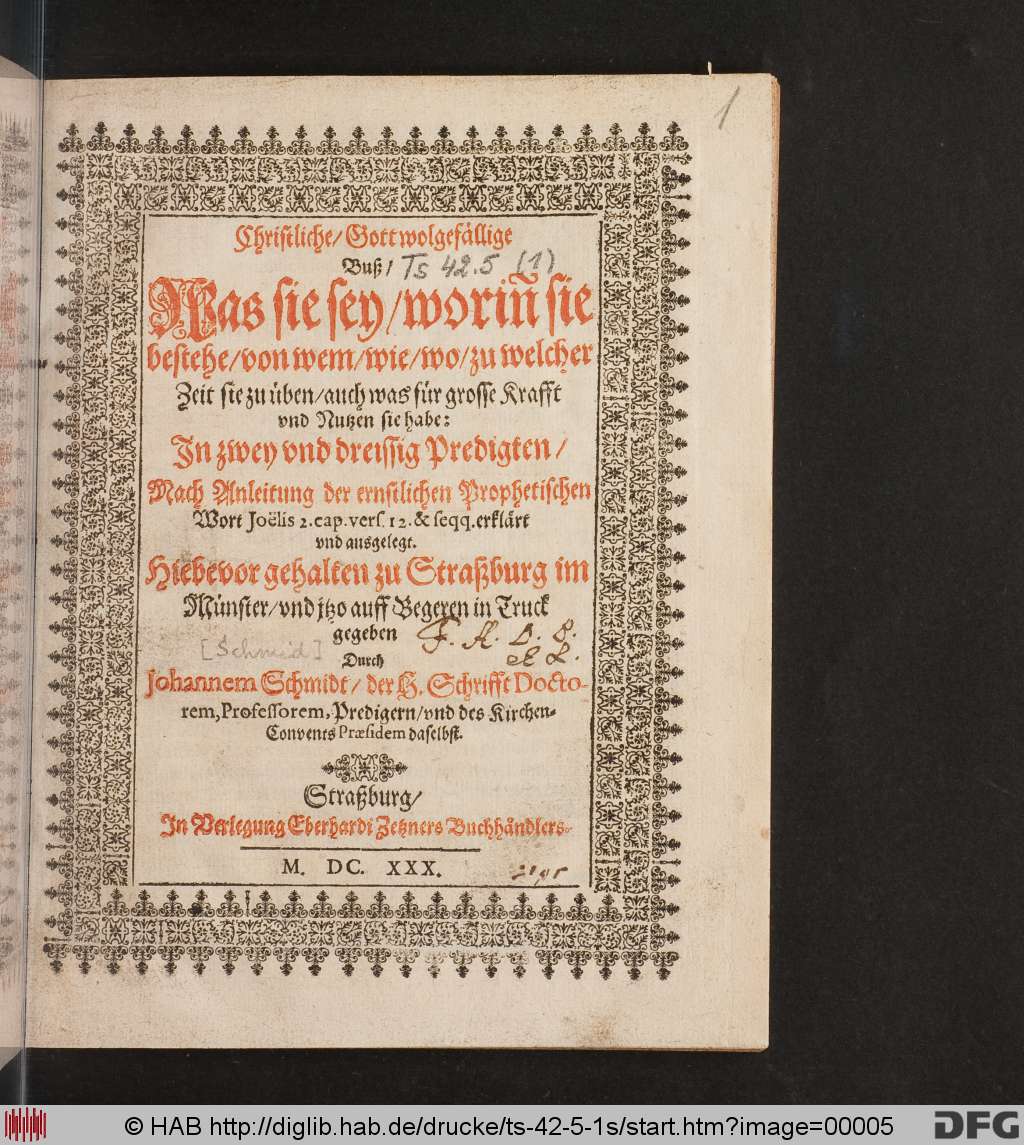 1
Christliche/ Gott wolgefällige
Buß/ Ts 42.5 (1)
Was sie sey/ woriñ sie
bestehe/ von wem/ wie/ wo/ zu welcher
Zeit sie zu üben/ auch was für grosse Krafft
vnd Nutzen sie habe:
In zwey vnd dreissig Predigten/
Nach Anleitung der ernstlichen Prophetischen
Wort Joëlis 2. cap. vers. 12. & seqq. erklärt
vnd ausgelegt.
Hiebevor gehalten zu Straßburg im
Münster/ vnd jtzo auff Begeren in Truck
gegeben
[Schmid]
Durch
Johannem Schmidt/ der H. Schrifft Docto-
rem, Professorem, Predigern/ vnd des Kirchen-
Convents Præsidem daselbst.
Straßburg/
In Verlegung Eberhardi Zetzners Buchhändlers.
M. DC. XXX.
© HAB http://diglib.hab.de/drucke/ts-42-5-1s/start.htm?image=00005
DFG